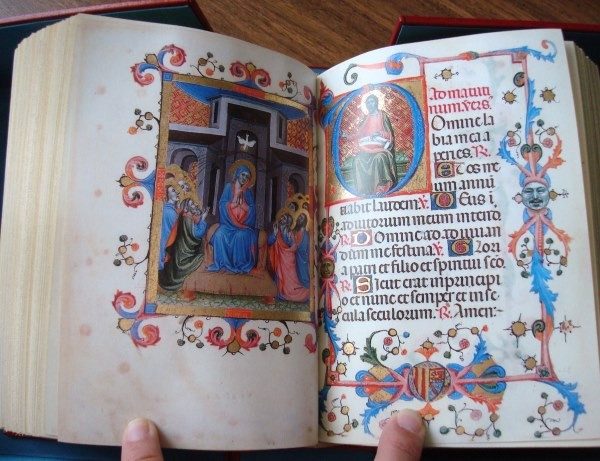 Ad matuti
num vers.
Omine la
bia mea a
peries. R.
Et os me
um annū
tiabit laudem. V. Deus i
adiutorium meum intend
R. Domine ad adiuuan
dum me festina. V. Glori
a patri et filio et spiritui sc̄o.
R. Sicut erat in princi pi
o et nunc et semper et in se
cula seculorum. R. Amen.